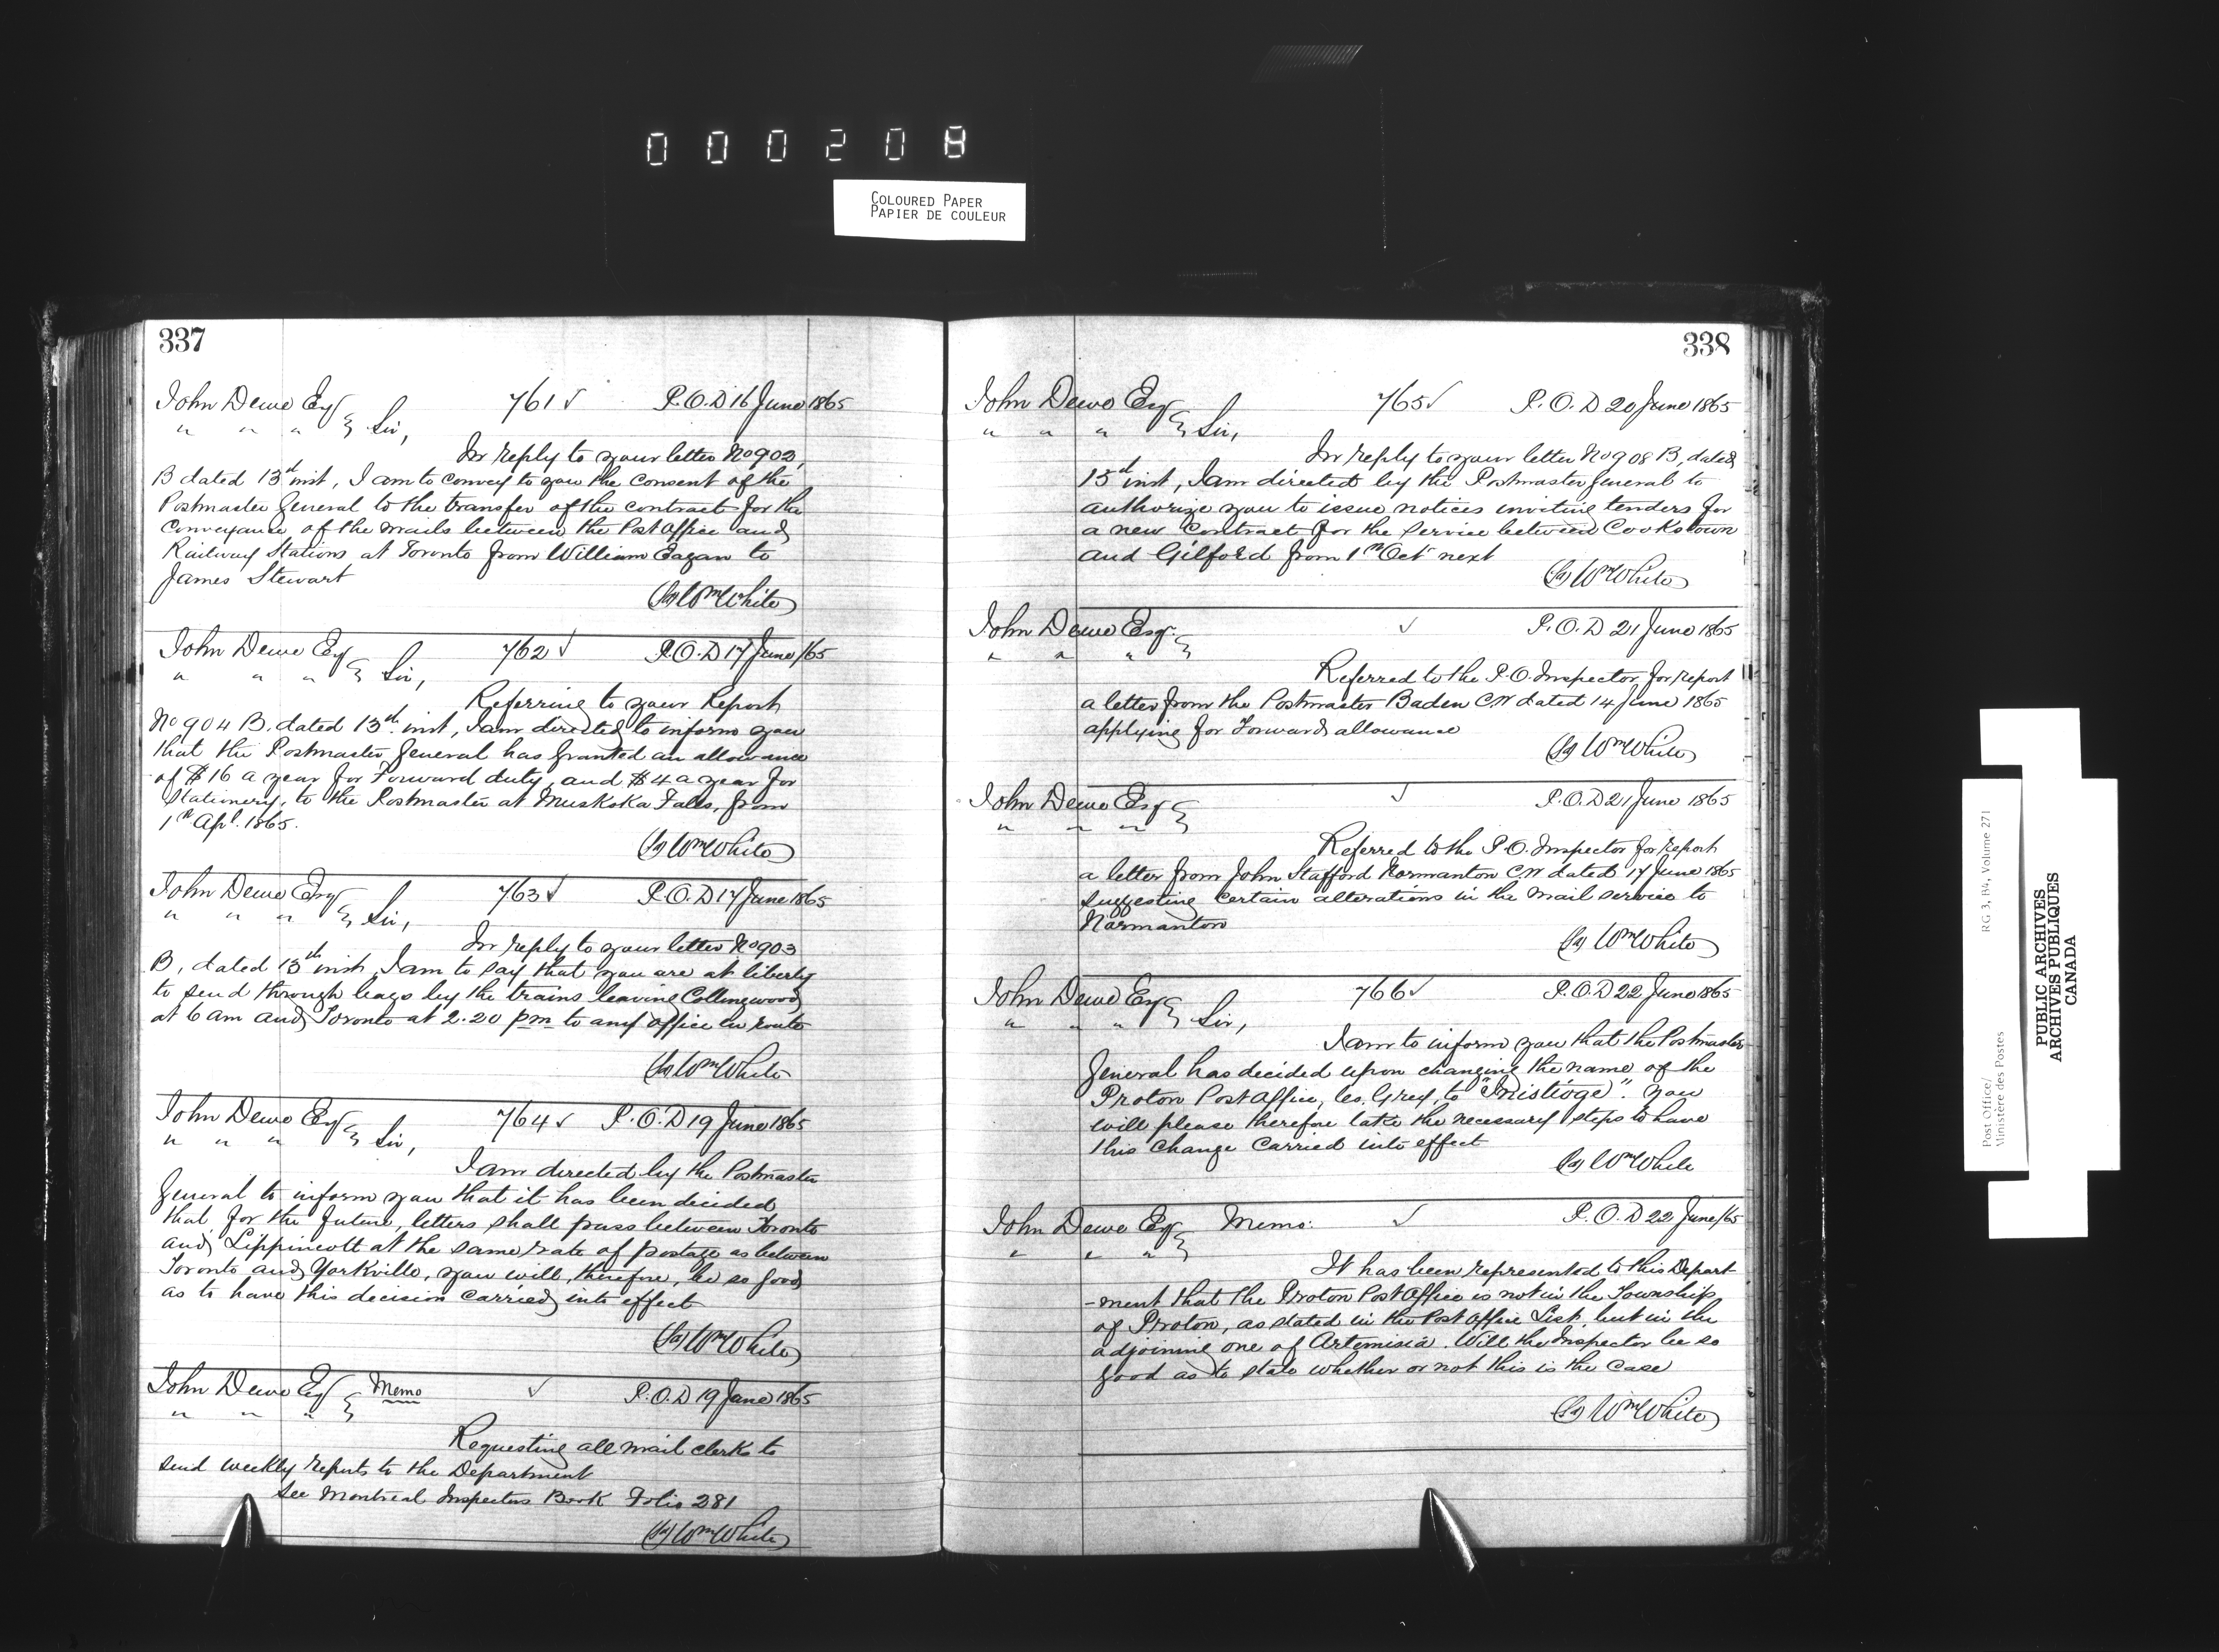 000208
COLOURED PAPER
PAPIER DE COULEUR
337
John Dewe Esq 761 ✓ P.O.D 16 June 1865
" " " } Sir,
In reply to your letter No 902,
B dated 13th inst, I am to convey to you the consent of the
Postmaster General to the transfer of the contract for the
Conveyance of the mails between the Post Office and
Railway Stations at Toronto from William Eagan to
James Stewart
(Sg) Wm White
John Dewe Esq 762 ✓ P.O.D 17 June /65
" " " } Sir,
Referring to your Report
No 904 B. dated 13th inst, I am directed to inform you
that the Postmaster General has granted an allowance
of $16 a year for Forward duty, and $4 a year for
Stationery, to the Postmaster at Muskoka Falls, from
1st Apl. 1865.
(Sg) Wm White
John Dewe Esq 763 ✓ P.O.D 17 June 1865
" " " } Sir,
In reply to your letter No 903
B, dated 13th inst, I am to say that you are at liberty
to send through bags by the trains leaving Collingwood
at 6 am and Toronto at 2.20 pm to any office en route
(Sg) Wm White
John Dewe Esq 764 ✓ P.O.D 19 June 1865
" " " } Sir,
I am directed by the Postmaster
General to inform you that it has been decided
that, for the future, letters shall pass between Toronto
and Lippincott at the same rate of postage as between
Toronto and Yorkville, you will, therefore, be so good
as to have this decision carried into effect
(Sg) Wm White
John Dewe Esq } Memo ✓ P.O.D 19 June 1865
" " "
Requesting all mail clerks to
send weekly reports to the Department
See Montreal Inspectors Book Folio 281
(Sg) Wm White
338
John Dewe Esq 765 ✓ P.O.D 20 June 1865
" " " } Sir,
In reply to your letter No 908 B, dated
15th inst, I am directed by the Postmaster General to
authorize you to issue notices inviting tenders for
a new Contract for the service between Cookstown
and Gilford from 1st Oct next
(Sg) Wm White
John Dewe Esqr. } ✓ P.O.D 21 June 1865
" " "
Referred to the P.O. Inspector for report
a letter from the Postmaster Baden C.W dated 14 June 1865
applying for Forward allowance
(Sg) Wm White
John Dewe Esq } ✓ P.O.D 21 June 1865
" " "
Referred to the P.O. Inspector for report
a letter from John Stafford Normanton C.W dated 17 June 1865
suggesting certain alterations in the mail service to
Normanton
(Sg) Wm White
John Dewe Esq 766 ✓ P.O.D 22 June 1865
" " " } Sir,
I am to inform you that the Postmaster
General has decided upon changing the name of the
Proton Post Office, Co. Grey, to "Inistioge". You
will please therefore take the necessary steps to have
this change carried into effect
(Sg) Wm White
John Dewe Esq } Memo: ✓ P.O.D 22 June /65
" " "
It has been represented to this Depart-
-ment that the Proton Post Office is not in the Township
of Proton, as stated in the Post Office List, but in the
adjoining one of Artemisia. Will the Inspector be so
good as to state whether or not this is the case
(Sg) Wm White
Post Office/ RG 3, B4, Volume 271
Ministère des Postes
PUBLIC ARCHIVES
ARCHIVES PUBLIQUES
CANADA